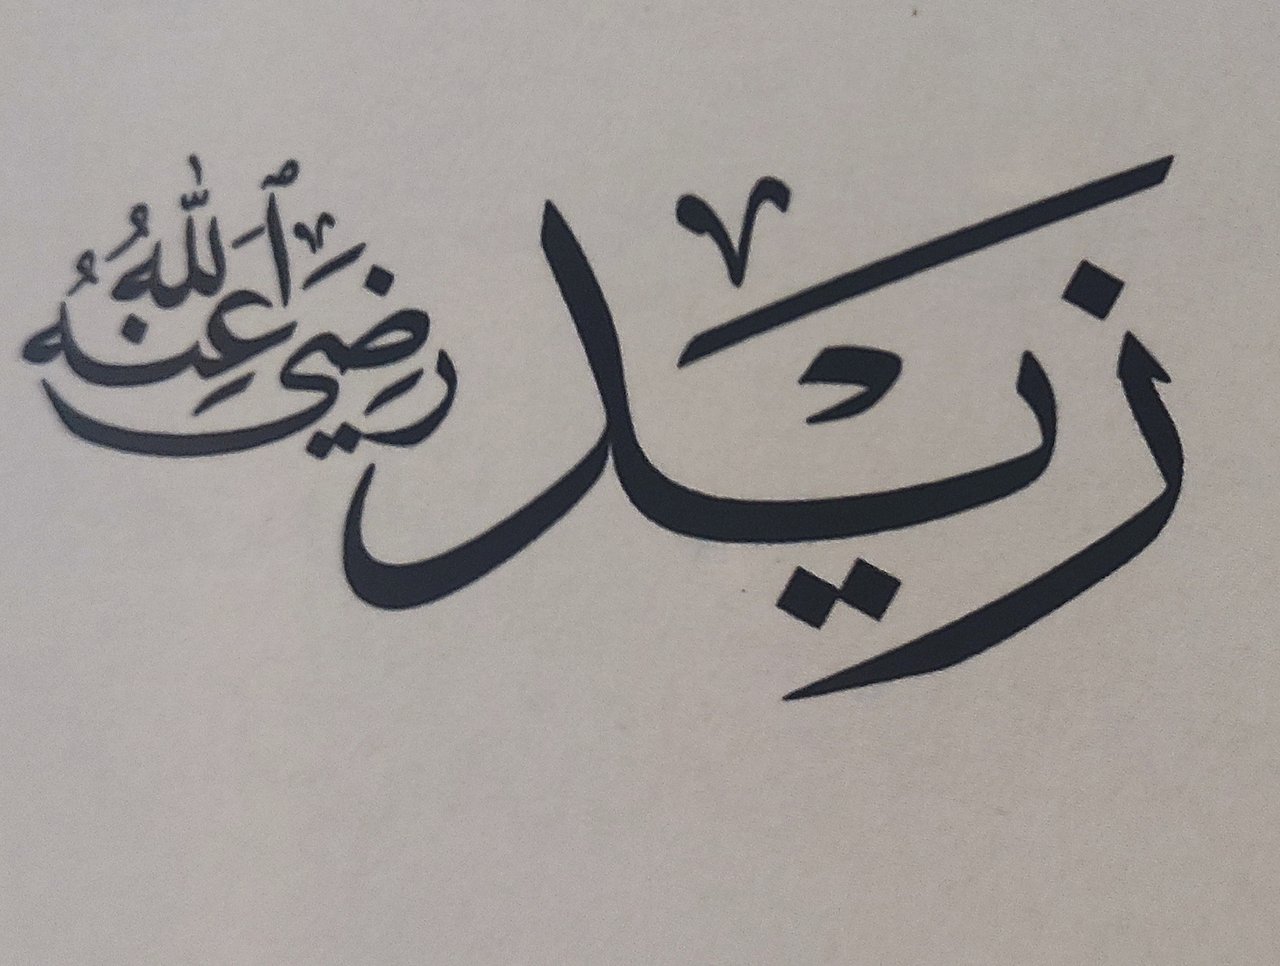 زَيْد رَضِيَ ٱللَّهُ عَنْهُ